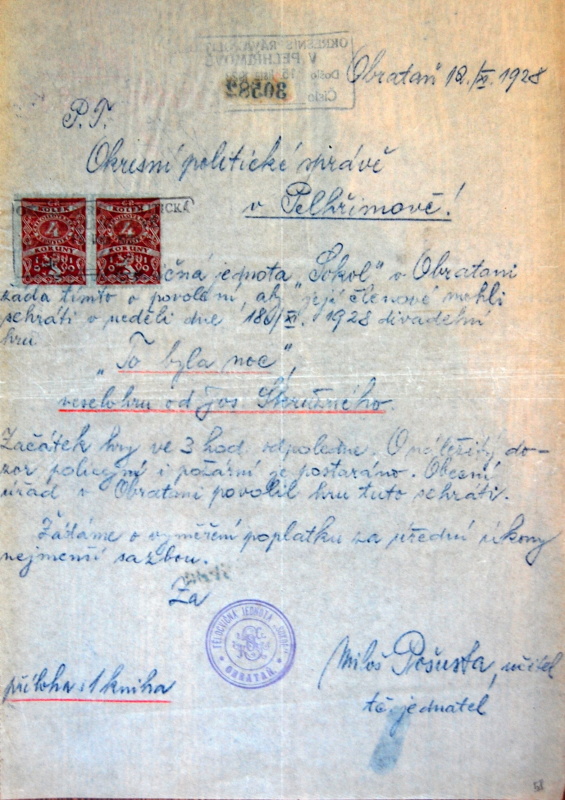 OKRESNÍ SPRÁVA POLIT.
V PELHŘIMOVĚ
Došlo 15
Číslo 30582
Obrataň 12./XI. 1928
P. T.
Okresní politické správě
v Pelhřimově!
KOLEK
4
KORUNY
KOLEK
4
KORUNY
ICKÁ
čná jednota „Sokol" v Obratani
žádá tímto o povolení, aby její členové mohli
sehráti v neděli dne 18./XI. 1928 divadelní
hru
„To byla noc",
veselohru od Jos Skružného.
Začátek hry ve 3 hod. odpoledne. O náležitý do-
zor policejní i požární je postaráno. Obecní
úřad v Obratani povolil hru tuto sehráti.
Žádáme o vyměření poplatku za úřední úkony
nejmenší sazbou.
Za
TĚLOCVIČNÁ JEDNOTA „SOKOL"
OBRATAŇ
Miloš Pošusta, učitel
tč. jednatel
příloha: 1 kniha
58